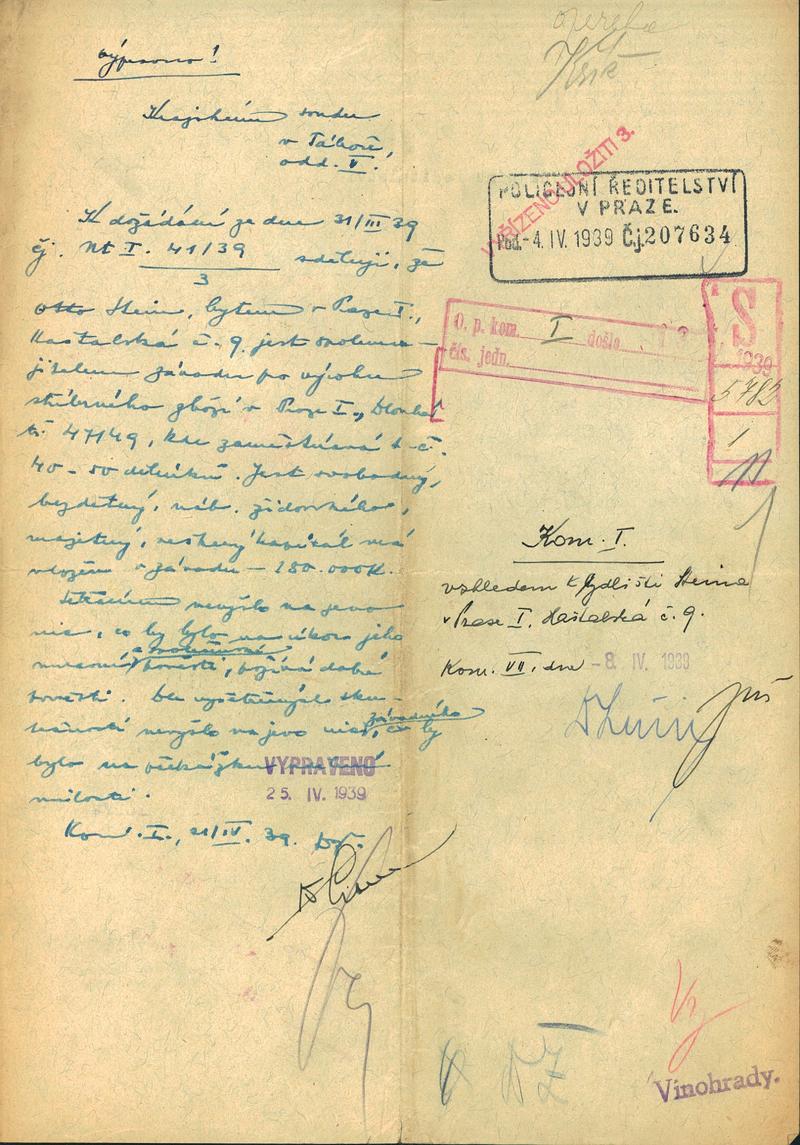 Vypraveno!
Krajskému soudu
v Táboře,
odd. V.
K dožádání ze dne 31/III 39
čj. Nt I. 41/39 sděluji, že
3
Otto Stein, bytem v Praze I.,
Haštalská č. 9. jest spolumа-
jitelem závodu po výrobu
stříbrného zboží v Praze I., Dlouhá
tř. 47/49, kde zaměstnává
40-50 dělníků. Jest svobodný,
bezdětný, náb. židovského,
majetný, veškerý kapitál má
vložen v závodu - 180.000K.
Šetřením nevyšlo na jevo
nic, co by bylo na úkor jeho
mravní
zachovalosti, požívá dobré
pověsti. Dle vyšetřených sku-
tečností nevyšlo na jevo nic
závadného, co by
bylo na překážku
milosti.
Kom. I., 21/IV. 39.
VYPRAVENO
25. IV. 1939
VYŘÍZENO ULOŽITI 3.
POLICEJNÍ ŘEDITELSTVÍ
V PRAZE.
Pod. -4. IV. 1939 Č.j. 207634
O. p. kom. I došlo
čís. jedn.
S
1939
5782
1
Kom. I.
vzhledem k bydlišti Steina
v Praze I. Haštalská č. 9.
Kom. VII. dne -8. IV. 1939
Vinohrady.